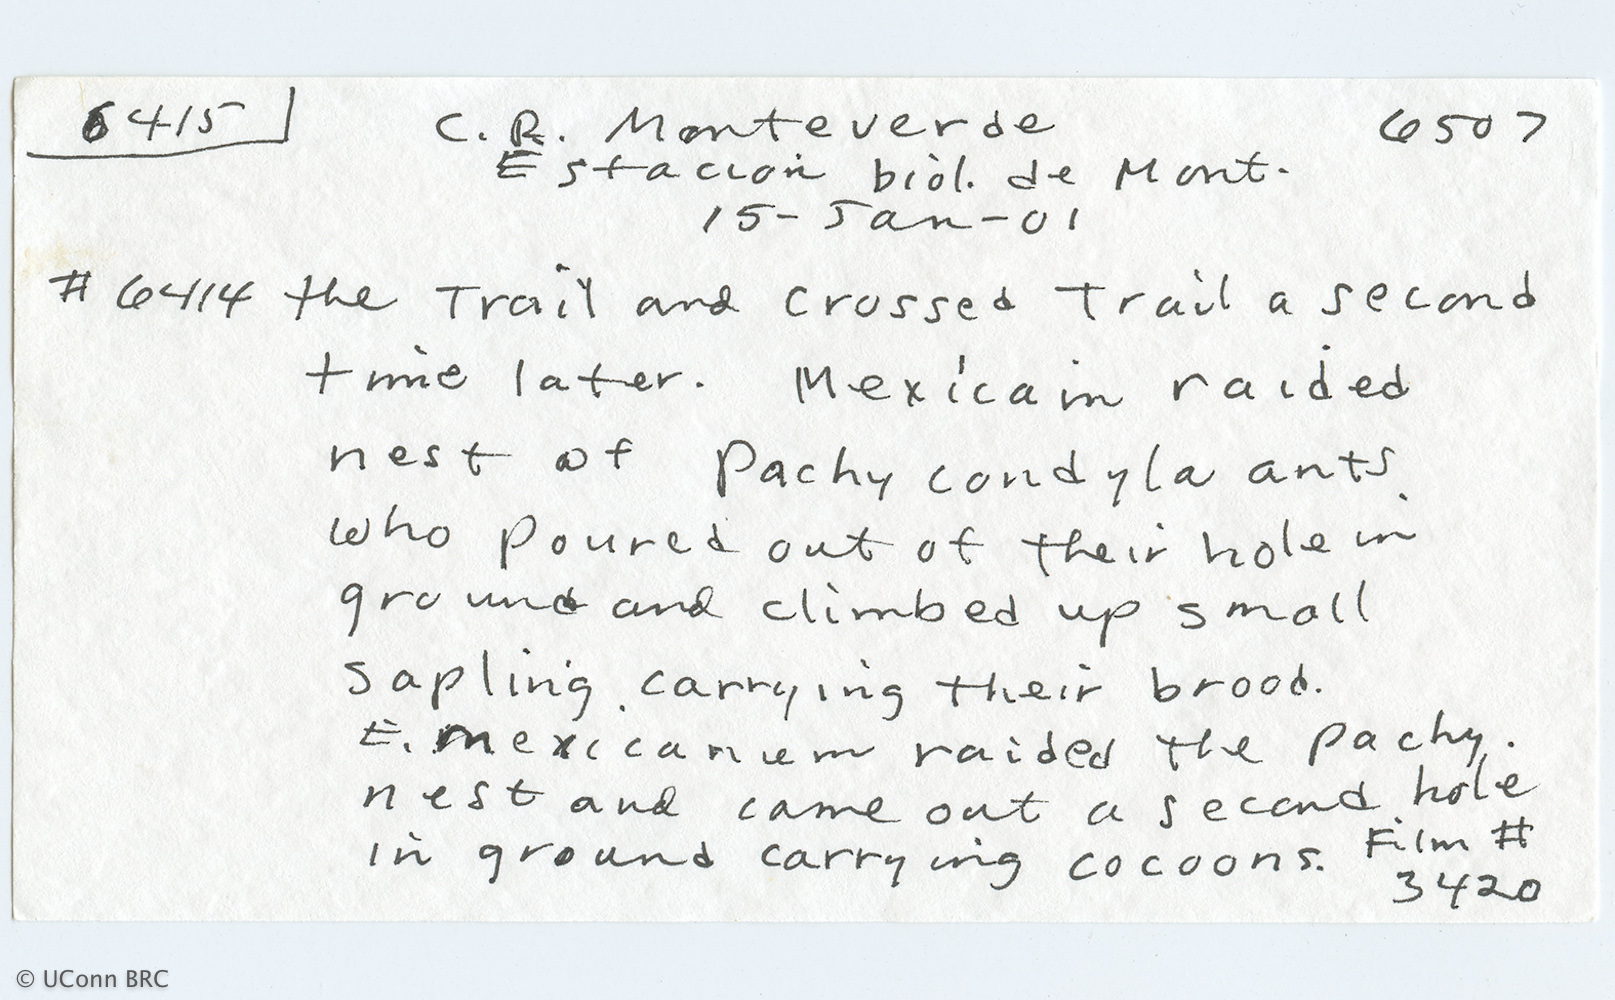 6415
C.R. Monteverde
6507
Estacion biol. de Mont.
15-Jan-01
# 6414 the Trail and crossed Trail a second
time later. Mexicain raided
nest of Pachycondyla ants
who poured out of their hole in
ground and climbed up small
sapling carrying their brood.
E. mexicanum raided the Pachy.
nest and came out a second hole
in ground carrying cocoons. Film #
3420
© UConn BRC